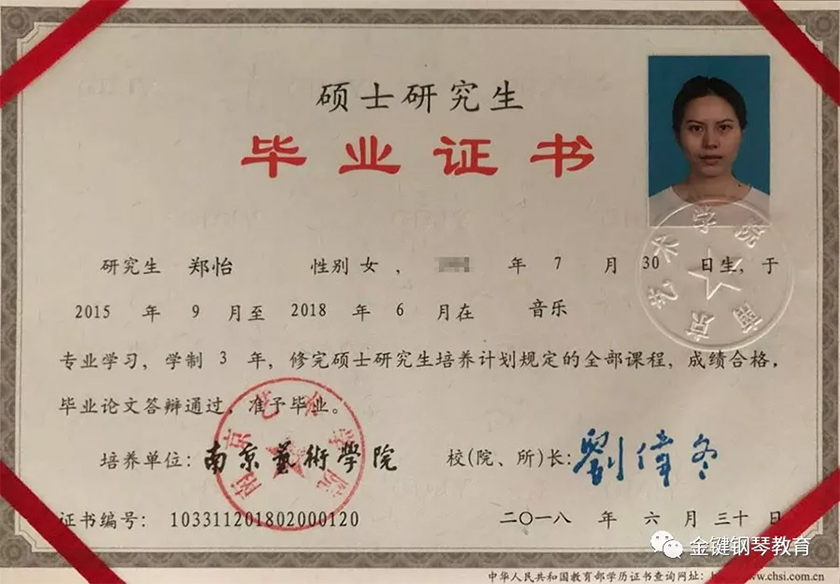 硕士研究生
毕业证书
研究生 郑怡 性别 女 , 年 7 月 30 日生,于
2015 年 9 月至 2018 年 6 月在 音乐
专业学习,学制 3 年,修完硕士研究生培养计划规定的全部课程,成绩合格,
毕业论文答辩通过,准予毕业。
培养单位: 南京藝術學院 校(院、所)长: 劉偉冬
南京艺术学院
南京艺术学院
证书编号: 103311201802000120 二〇一八 年 六 月 三十 日
金键钢琴教育
中华人民共和国教育部学历证书查询网址: www.chsi.com.cn